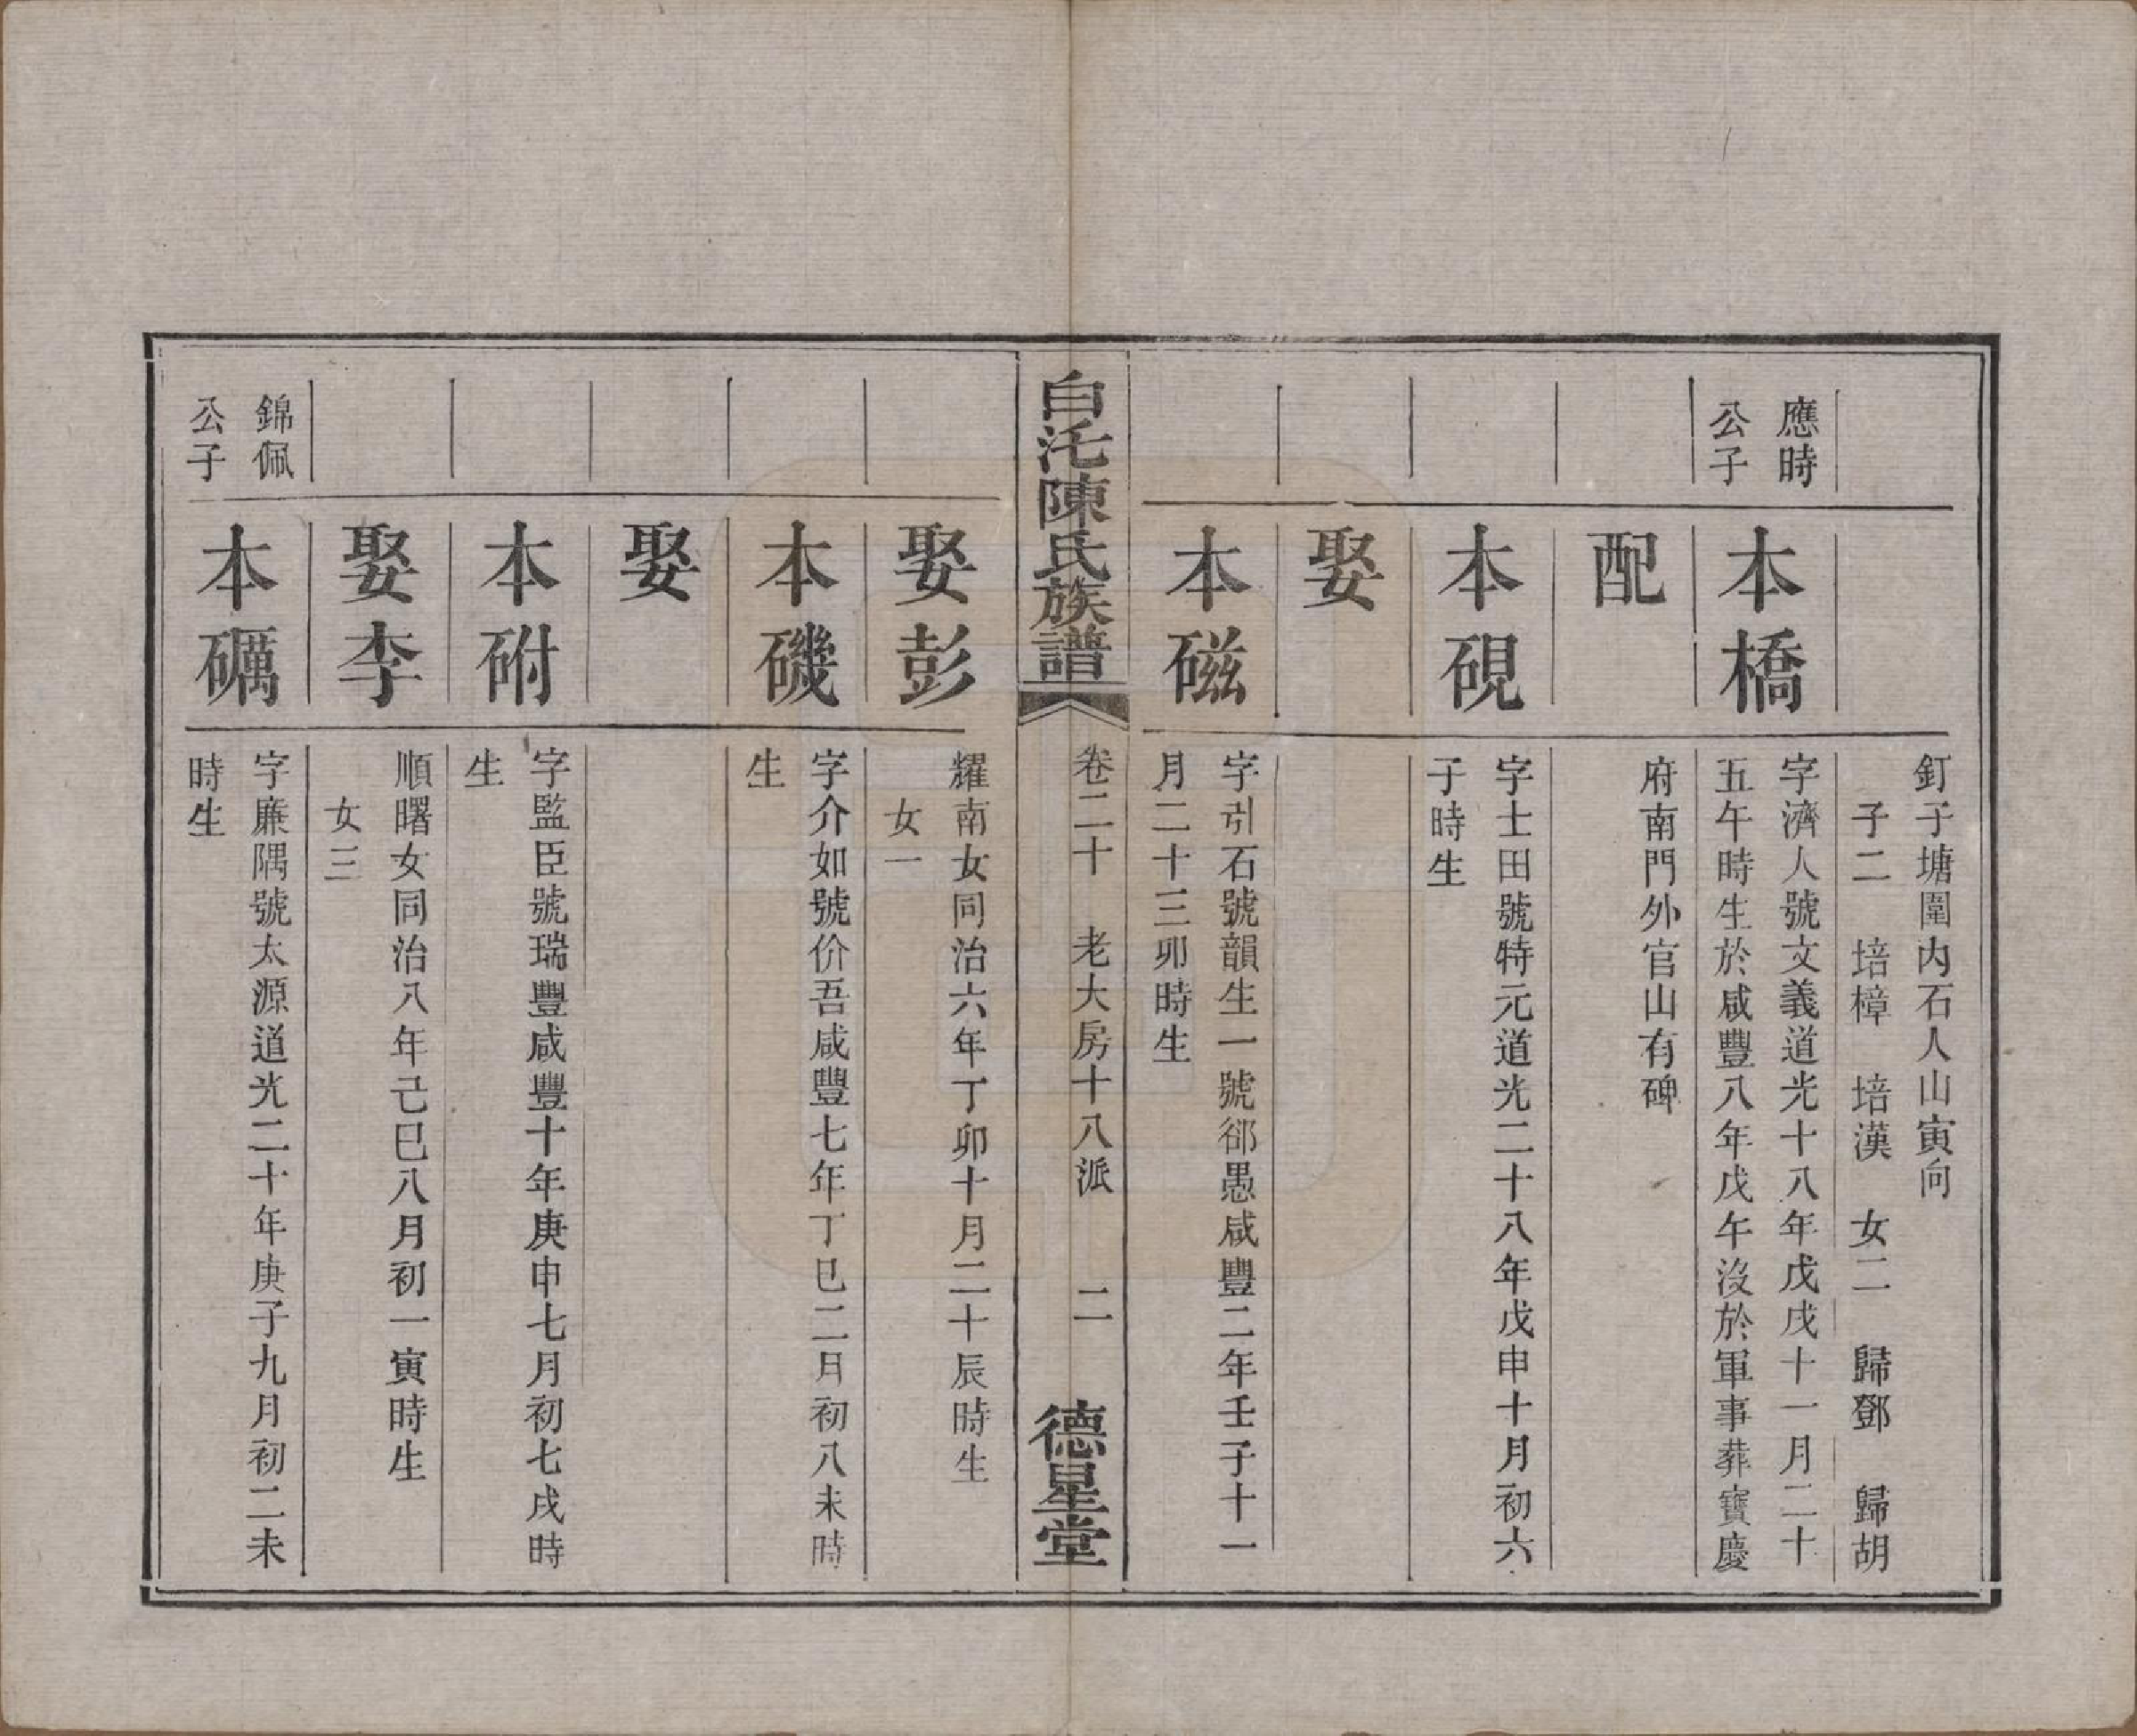 釘子塘圍内石人山寅向
子二 培樟 培漢 女二 歸鄧 歸胡
應時
公子
本橋
字濟人號文義道光十八年戊戌十一月二十
五午時生於咸豐八年戊午沒於軍事葬寶慶
配
府南門外官山有碑
本硯
字士田號特元道光二十八年戊申十月初六
子時生
娶
本磁
字引石號韻生一號鄒愚咸豐二年壬子十一
月二十三卯時生
白沱陳氏族譜
卷二十 老大房十八派 二
德星堂
娶彭
耀南女同治六年丁卯十月二十辰時生
女一
本磯
字介如號价吾咸豐七年丁巳二月初八未時
生
娶
本砩
字監臣號瑞豐咸豐十年庚申七月初七戌時
生
娶李
順曙女同治八年己巳八月初一寅時生
女三
錦佩
公子
本礪
字廉隅號太源道光二十年庚子九月初二未
時生